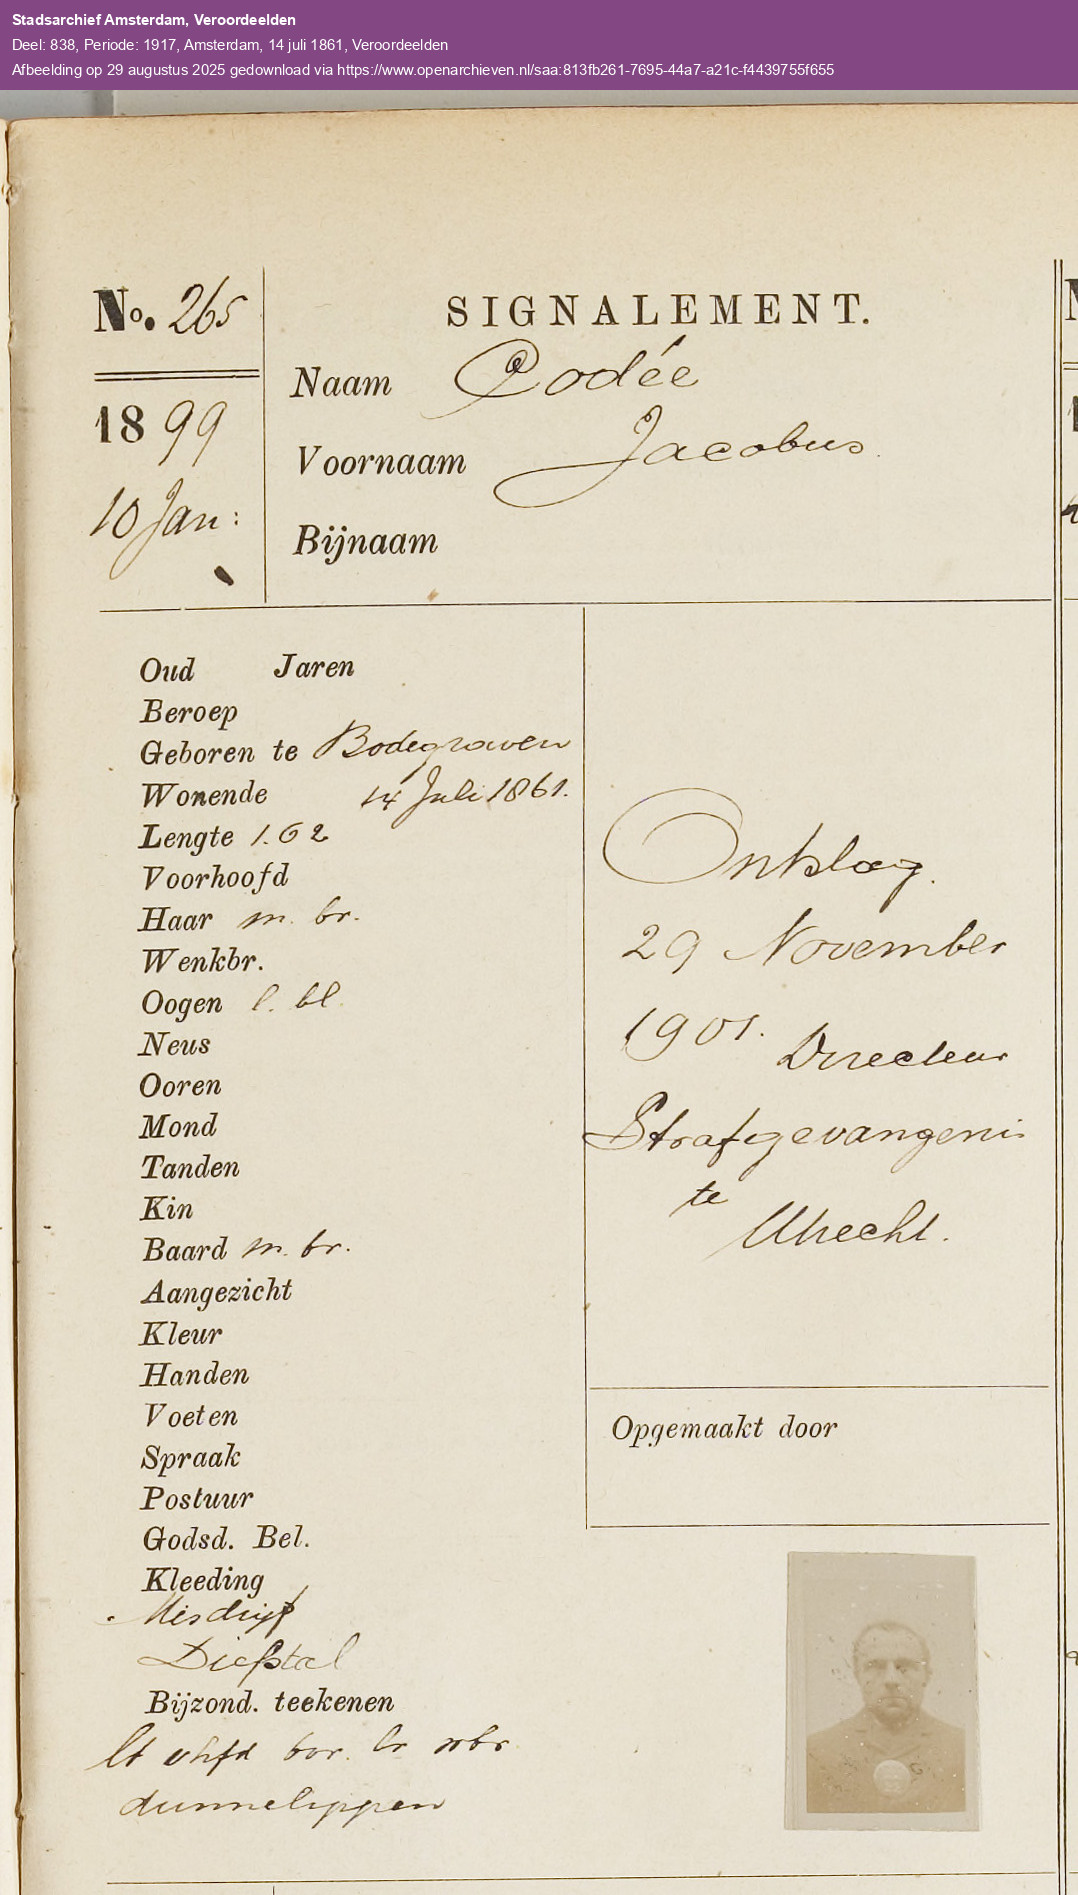 Stadsarchief Amsterdam, Veroordeelden
Deel: 838, Periode: 1917, Amsterdam, 14 juli 1861, Veroordeelden
Afbeelding op 29 augustus 2025 gedownload via https://www.openarchieven.nl/saa:813fb261-7695-44a7-a21c-f4439755f655
No. 265
1899
10 Jan:
SIGNALEMENT.
Naam Codée
Voornaam Jacobus.
Bijnaam
Oud Jaren
Beroep
Geboren te Bodegraven
Wonende 14 Juli 1861.
Lengte 1.62
Voorhoofd
Haar m. br.
Wenkbr.
Oogen l. bl.
Neus
Ooren
Mond
Tanden
Kin
Baard m. br.
Aangezicht
Kleur
Handen
Voeten
Spraak
Postuur
Godsd. Bel.
Kleeding
Misdrijf
Diefstal
Bijzond. teekenen
dunnelippen
Ontslag.
29 November
1901. Directeur
Strafgevangenis
te
Utrecht.
Opgemaakt door